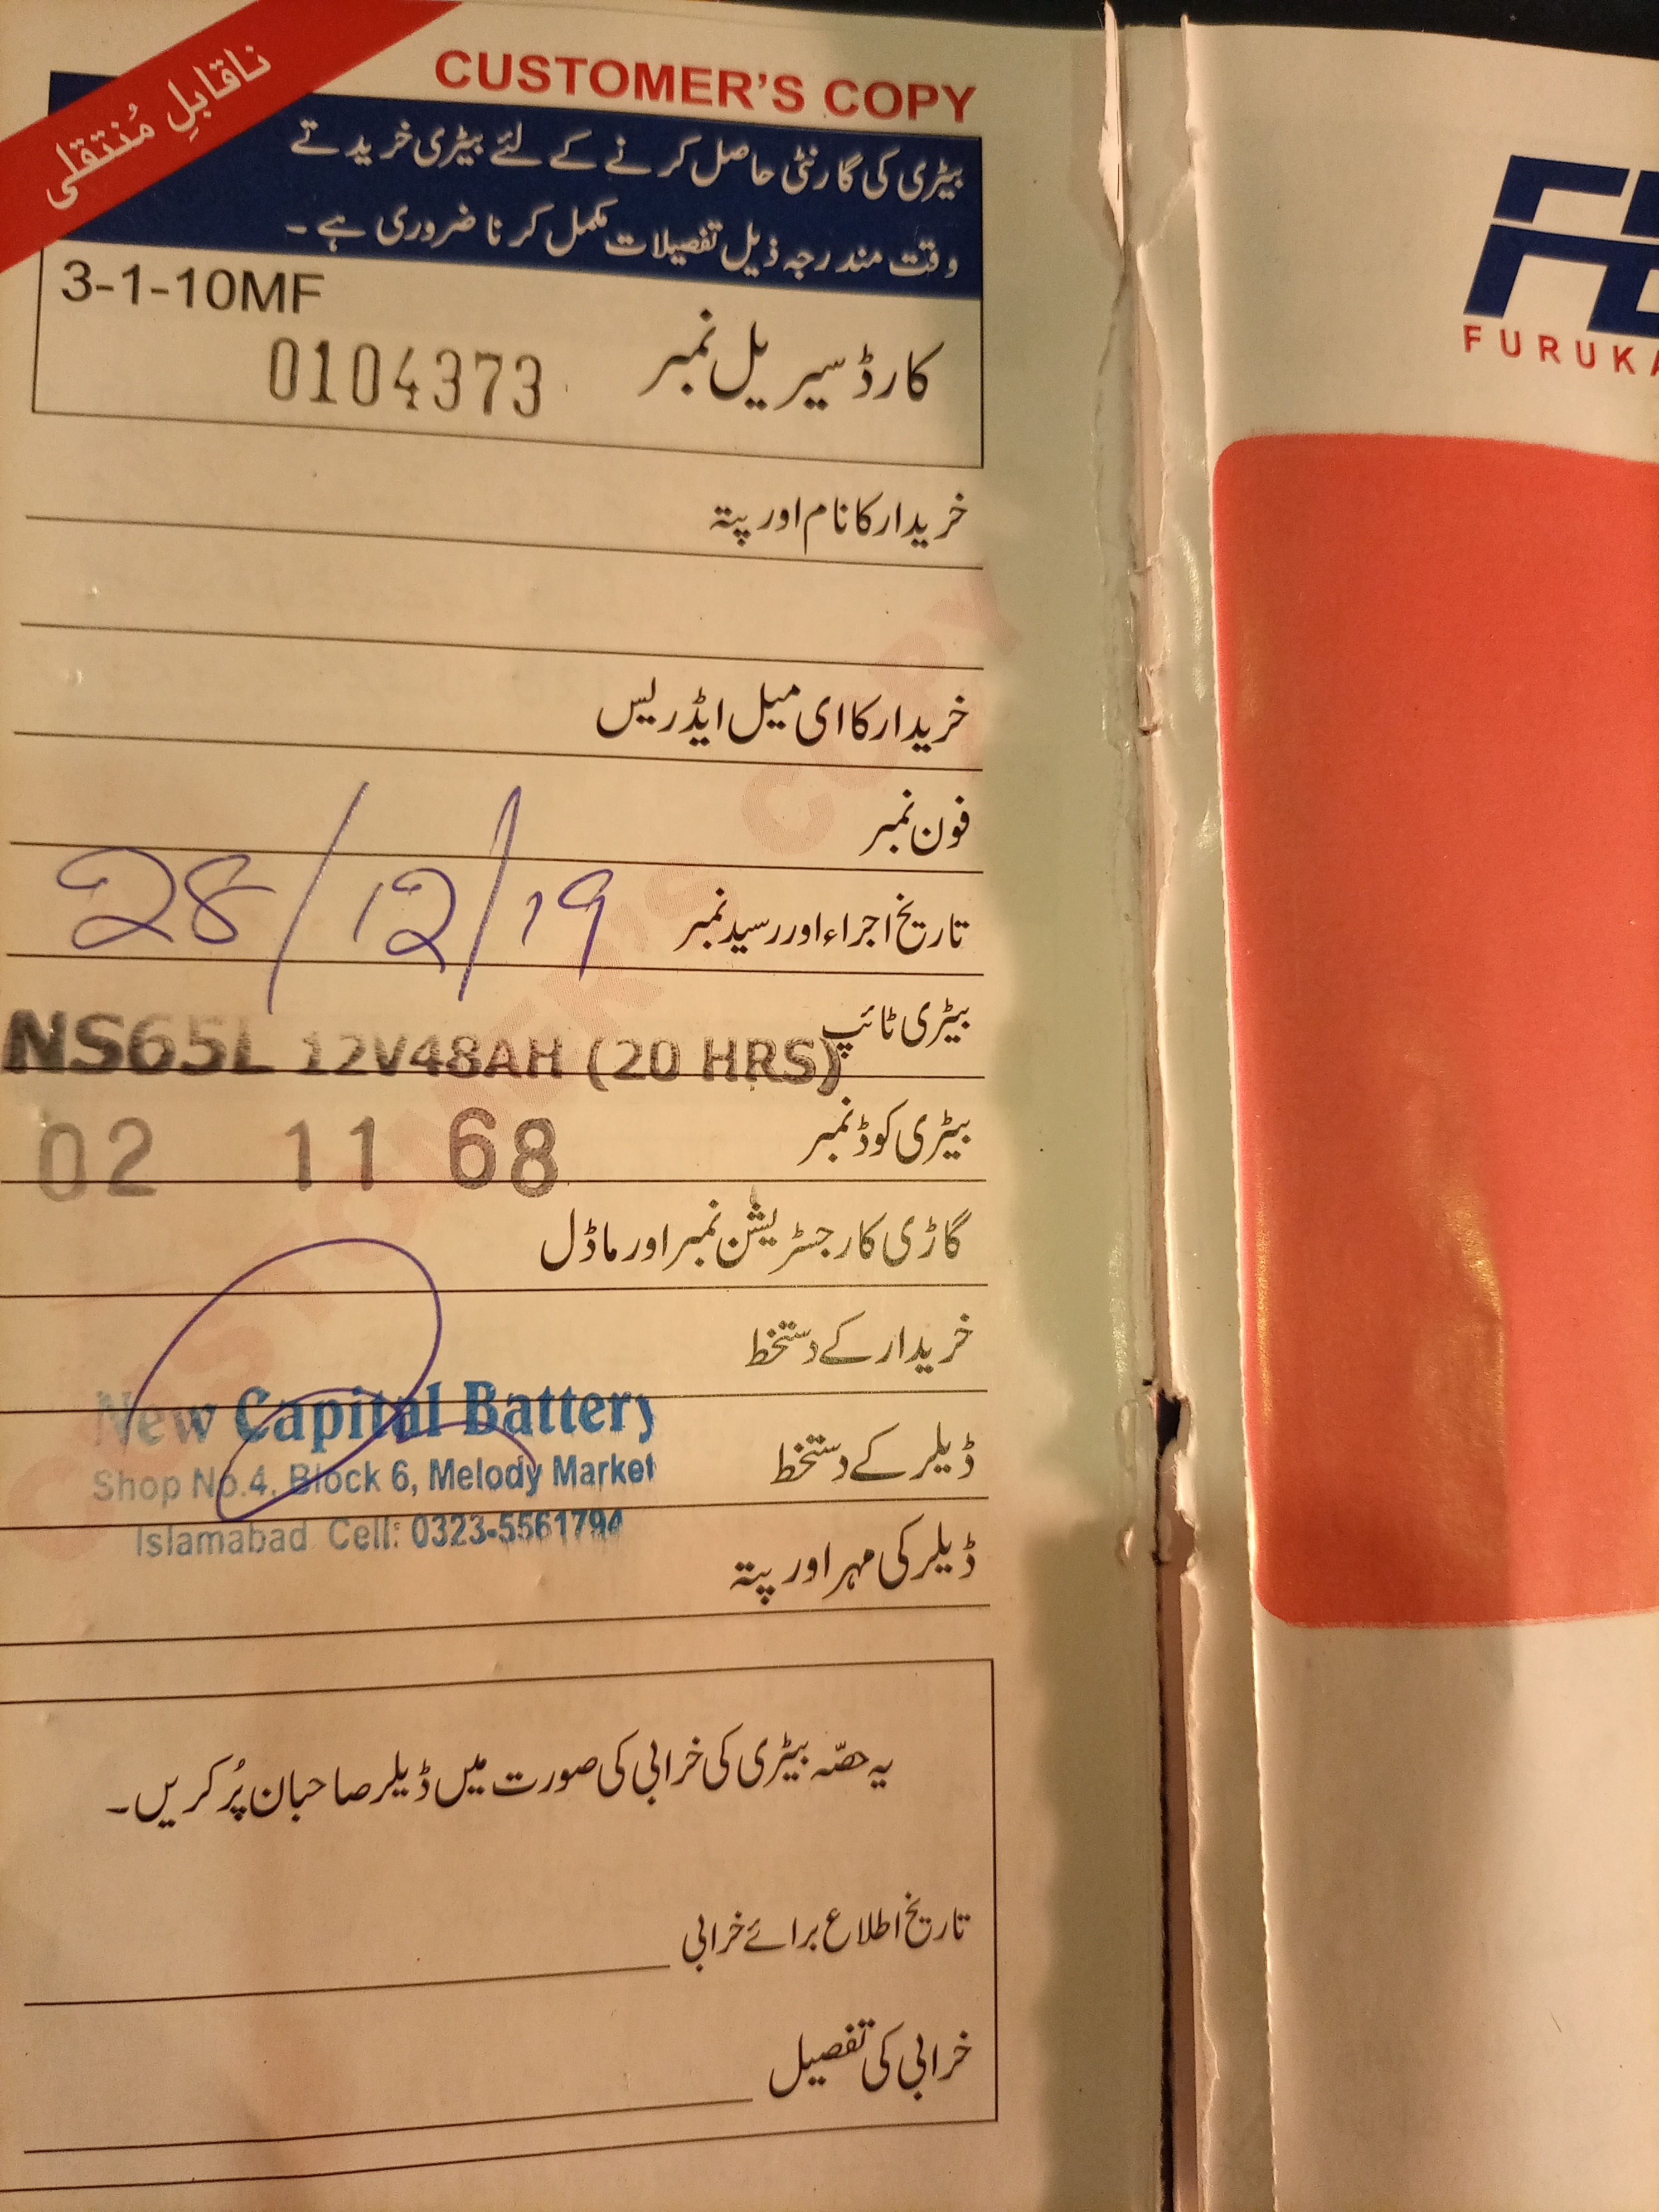 ناقابلِ مُنتقلی
CUSTOMER'S COPY
بیٹری کی گارنٹی حاصل کرنے کے لئے بیٹری خریدتے
وقت مندرجہ ذیل تفصیلات مکمل کرنا ضروری ہے۔
3-1-10MF
کارڈ سیریل نمبر 0104373
خریدار کا نام اور پتہ
خریدار کا ای میل ایڈریس
فون نمبر
تاریخ اجراء اور رسید نمبر 28/12/19
بیٹری ٹائپ NS65L 12V48AH (20 HRS)
بیٹری کوڈ نمبر 02 11 68
گاڑی کا رجسٹریشن نمبر اور ماڈل
خریدار کے دستخط
New Capital Battery
ڈیلر کے دستخط
Shop No.4, Block 6, Melody Market
Islamabad Cell: 0323-5561794
ڈیلر کی مہر اور پتہ
یہ حصّہ بیٹری کی خرابی کی صورت میں ڈیلر صاحبان پُر کریں۔
تاریخ اطلاع برائے خرابی
خرابی کی تفصیل
CUSTOMER'S COPY
FB
FURUKA